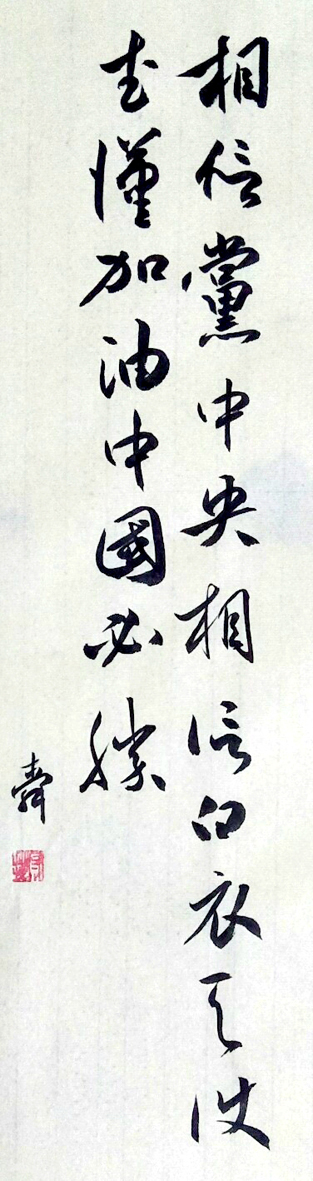 相信黨中央相信白衣天使
武漢加油中國必勝
舜